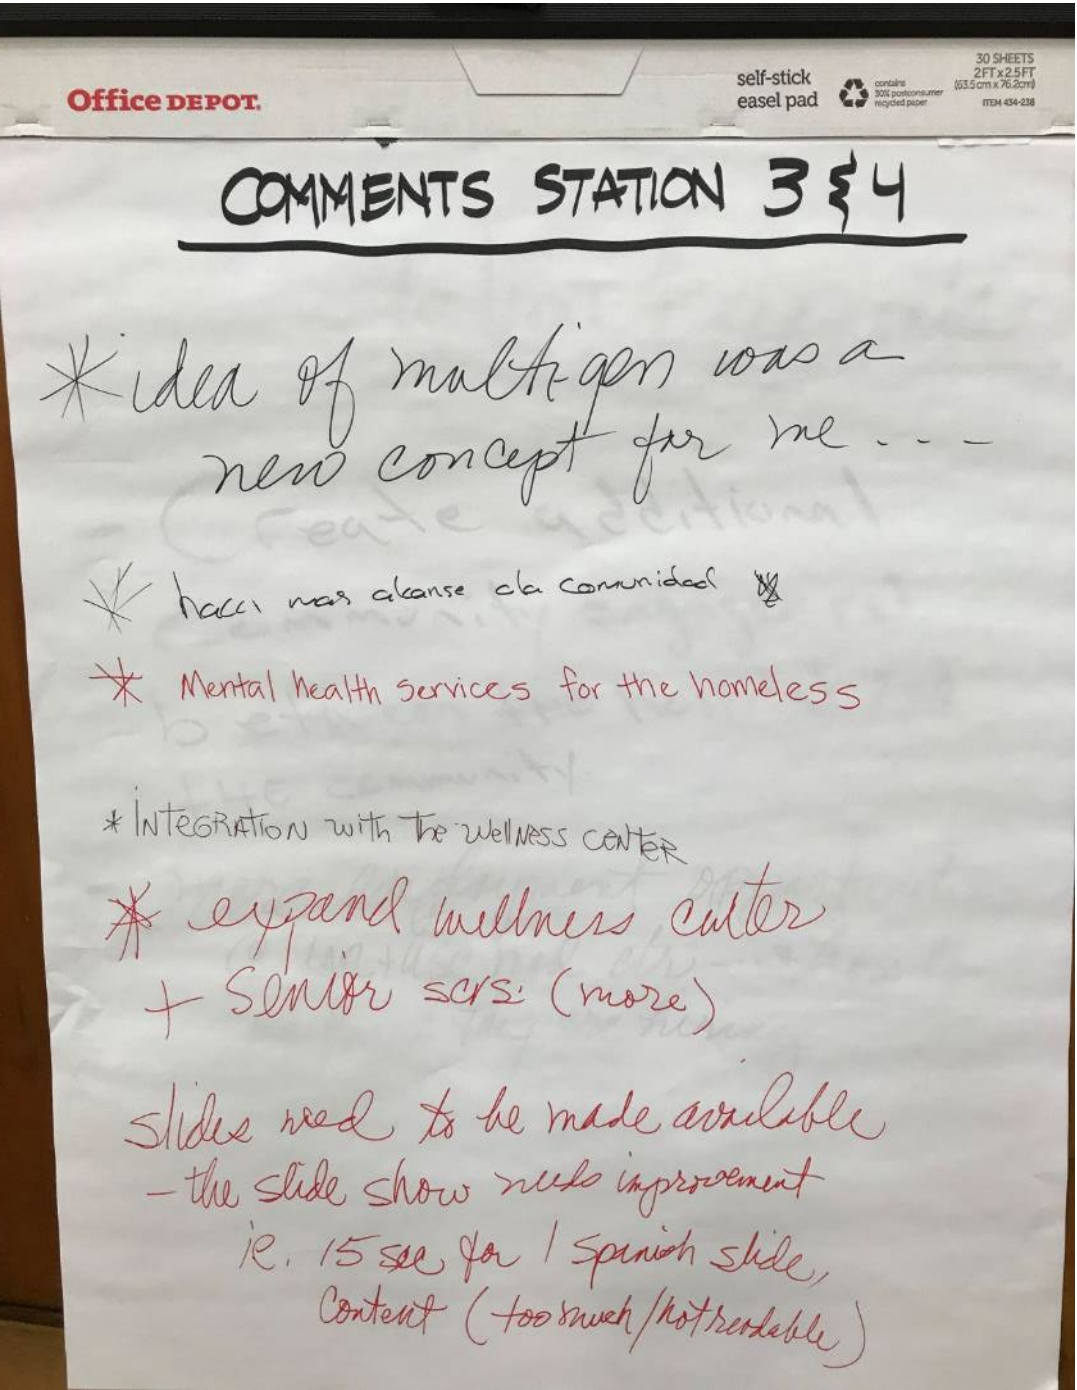 Office DEPOT.
self-stick
easel pad
contains
30% postconsumer
recycled paper
30 SHEETS
2FT x 2.5FT
(63.5cm x 76.2cm)
ITEM 434-238
COMMENTS STATION 3 & 4
* idea of multigen was a
new concept for me . . . -
* hacer mas alcanse ala comunidad
* Mental health services for the homeless
* INTEGRATION with The Wellness CENTER
* expand wellness center
+ Senior scrs. (more)
slides need to be made available
- the slide show needs improvement
ie. 15 sec for 1 Spanish slide,
Content (too much/not readable)